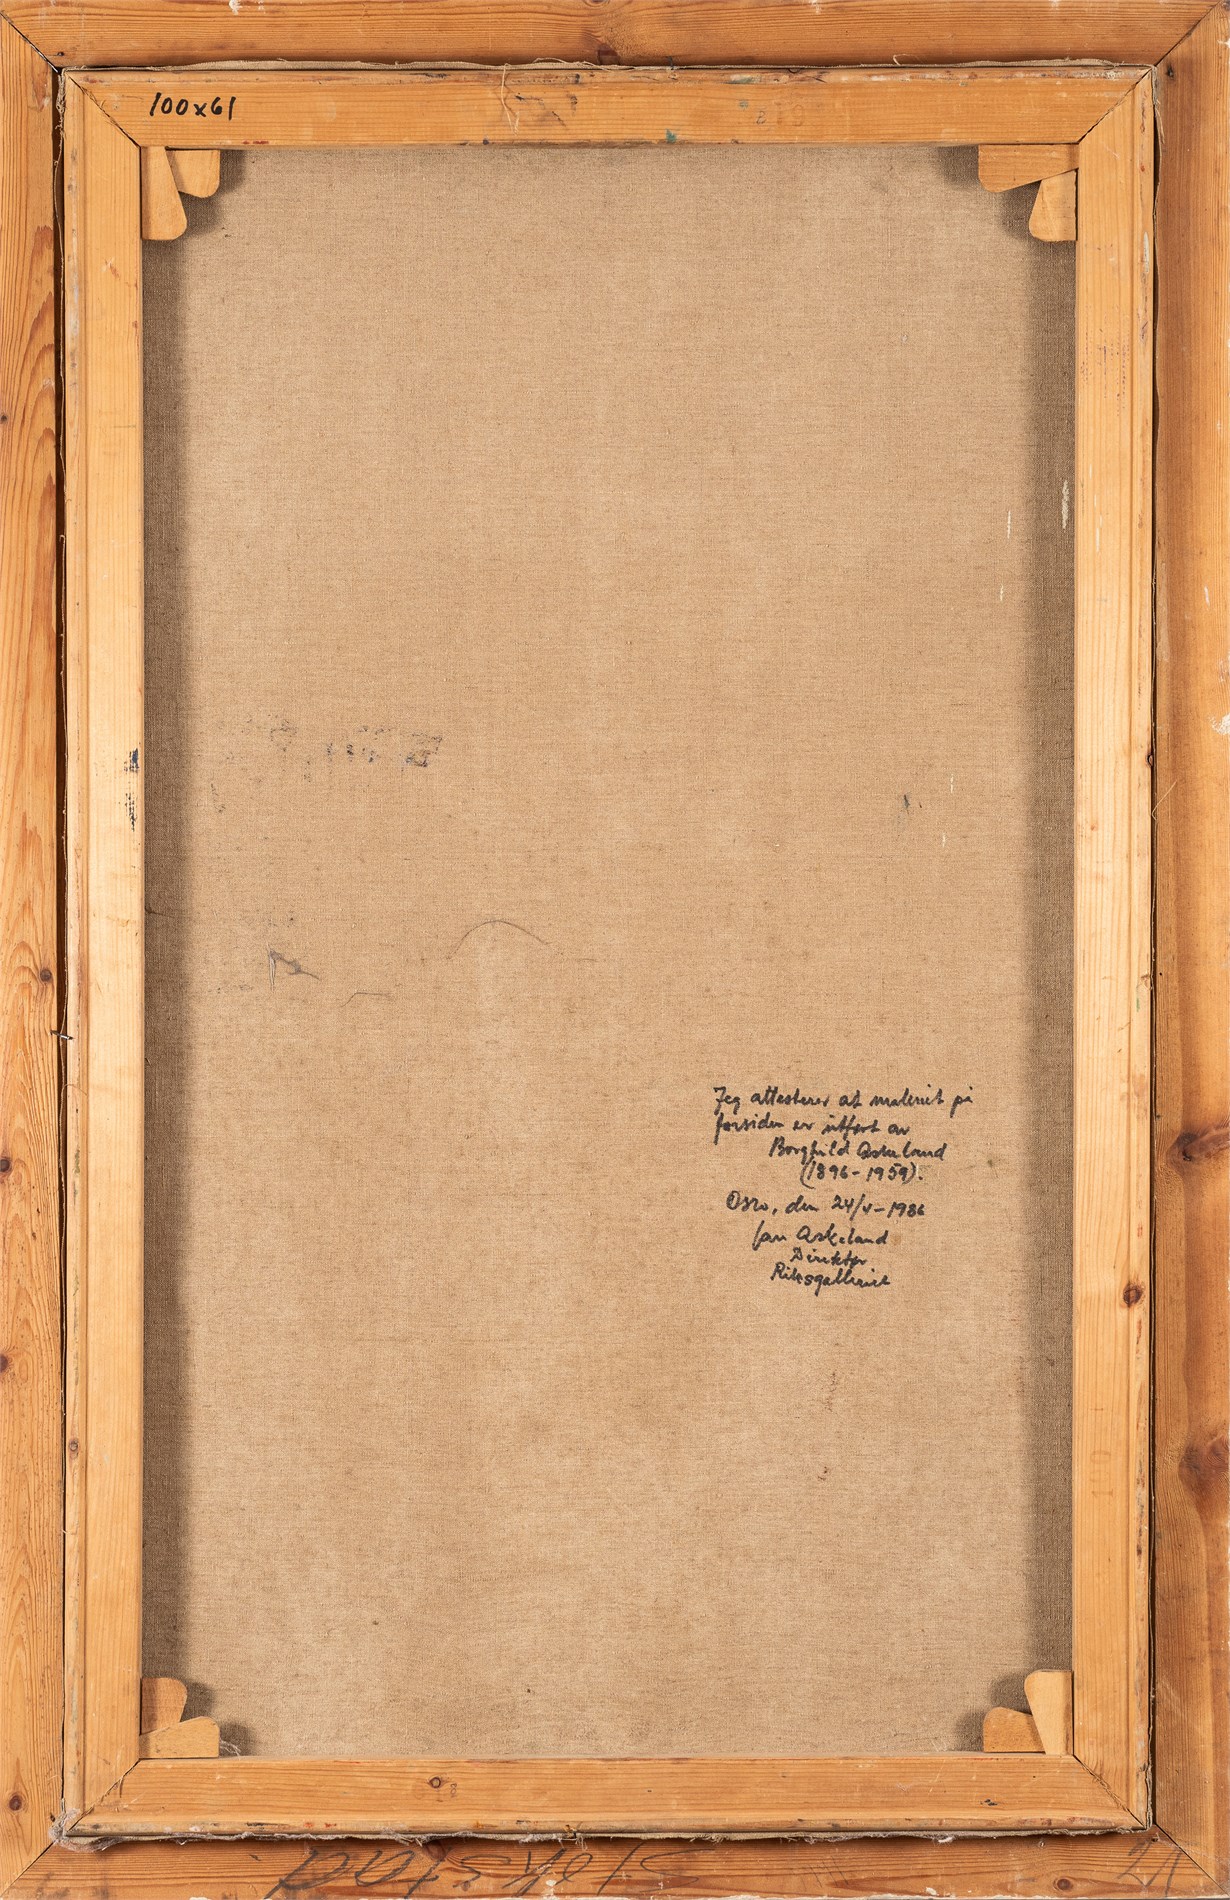 100x61
Jeg attesterer at maleriet på
forsiden er utført av
Borghild Askeland
(1896-1959).
Oslo, den 24/v-1986
Jan Askeland
Direktør
Riksgalleriet
21